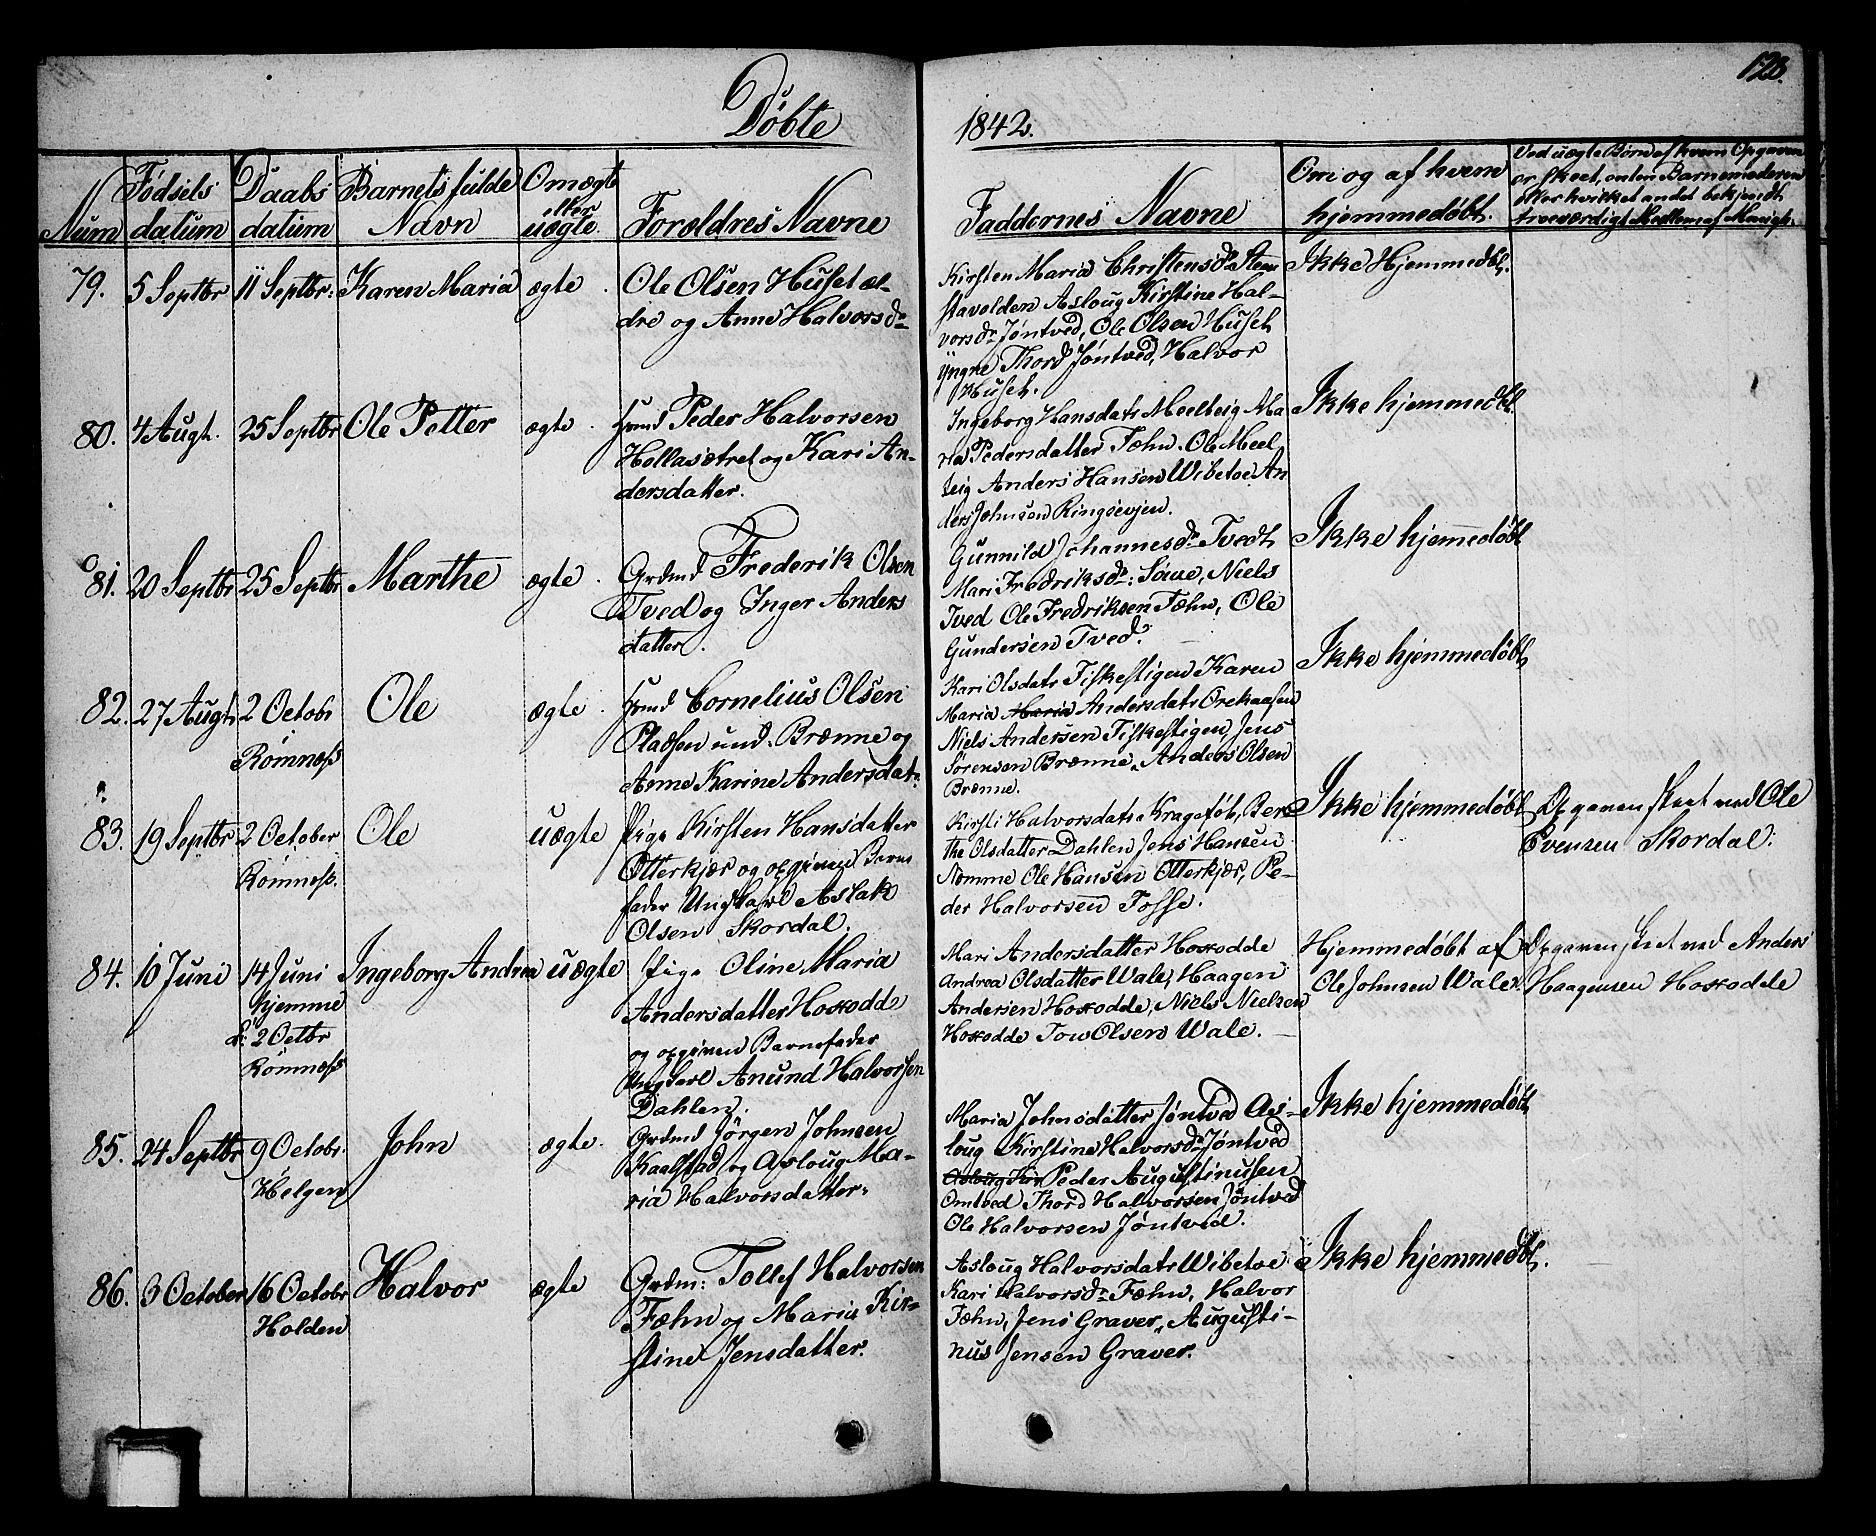 128.
Døbte 1842.
Num
Fødsels datum
Daabs datum
Barnets fulde Navn
Om ægte eller uægte
Forældres Navne
Faddernes Navne
Om og af hvem hjemmedøbt.
Ved uægte Børn af hvem Opgaven
er skeet, enten Barnemoderen
eller hvilket andet bekjendt
troeværdigt Medlem af Menigh:
79.
5 Septbr
11 Septbr:
Karen Maria
ægte
Ole Olsen Huset æl-
dre og Anne Halvorsdr
Kirsten Maria Christensdr Steen
stavolden Asloug Kirstine Hal-
vorsdr Jøntved, Ole Olsen Huset
yngre Thord Jøntved, Halvor
Huset.
Ikke Hjemmedbt.
80.
4 Augt.
25 Septbr
Ole Petter
ægte
Huusmd Peder Halvorsen
Hollasætret og Kari An-
dersdatter.
Ingeborg Hansdatr Meelteig Ma
ria Pedersdatter Fæhn. Ole Meel
teig Anders Hansen Wibetoe An
ders Johnsen Ringsevjen.
Ikke hjemmedbt
81.
20 Septbr
25 Septbr
Marthe
ægte
Grdmd Frederik Olsen
Tved og Inger Anders
datter.
Gunnild Johannesdr Tvedt
Mari Fredriksdr: Sauve, Niels
Tved Ole Fredriksen Fæhn, Ole
Gundersen Tved.
Ikke hjemedøbt
82.
27 Augt
2 Octobr
Romnæss
Ole
ægte
Huusmd Cornelius Olsen
Pladsen und. Brænne og
Anne Karine Andersdatr
Kari Olsdatr Fiskestigen Karen
Maria Maria Andersdatr Orekaasen
Niels Andersen Fiskestigen, Jens
Sørensen Brænne, Anders Olsen
Brænne.
Ikke hjemmedøbt
83.
19 Septbr
2 October
Romnæss.
Ole
uægte
Pige Kirsten Hansdatter
Otterkjær og opgiven Barne
fader Ungkarl Aslak
Olsen Skordal.
Kirsti Halvorsdatr Kragefôt, Ber
the Olsdatter Dahlen Jens Hansen
Nomme Ole Hansen Otterkjær, Pe-
der Halvorsen Fosse.
Ikke hjemmedøbt
Opgaven skeet ved Ole
Evensen Skordal.
84.
10 Juni
14 Juni
hjemme
d: 2 Octbr
Romnæss
Ingeborg Andrea
uægte
Pige Oline Maria
Andersdatter Hoskodde
og opgiven Barnefader
Ungkarl Anund Halvorsen
Dahlen.
Mari Andersdatter Hoskodde
Andrea Olsdatter Wale, Haagen
Andersen Hoskodde, Niels Nielsen
Hoskodde Tow Olsen Wale.
Hjemmedøbt af
Ole Johnsen Wale
Opgaven skeet ved Anders
Haagensen Hoskodde
85.
24 Septbr
9 Octobr.
Helgen
John
ægte.
Grdmd Jörgen Johnsen
Kaasstad og Asloug Ma-
ria Halvorsdatter.
Maria Johnsdatter Jøntved As-
loug Kirstine Halvorsdr Jøntved
Asloug Kir Peder Augustinusen
Omtved Thord Halvorsen Jöntved
Ole Halvorsen Jöntved.
Ikke hjemmedøbt
86.
3 October
16 Octobr
Holden
Halvor
ægte
Grdm: Tollef Halvorsen
Fæhn og Maria Kir-
stine Jensdatter.
Asloug Halvorsdatr Wibetoe
Kari Halvorsdr Fæhn, Halvor
Fæhn, Jens Graver, Augusti-
nus Jensen Graver.
Ikke hjemmedbt.